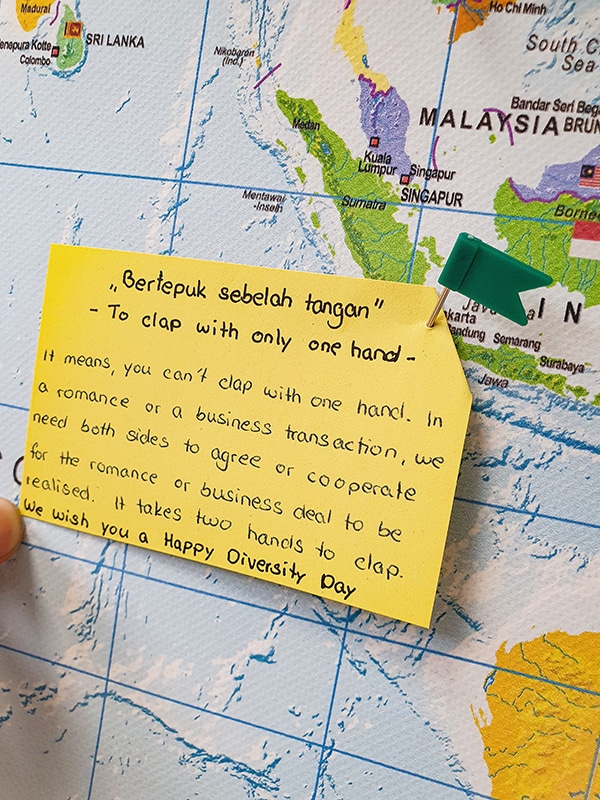 Madurai
Ho Chi Minh
SRI LANKA
Colombo
Nikobaren
(Ind.)
South C
Sea
Bandar Seri Bega
MALAYSIA BRUN
Medan
Kuala
Lumpur
Singapur
SINGAPUR
Mentawai
-Inseln
Sumatra
Borneo
„Bertepuk sebelah tangan”
- To clap with only one hand -
It means, you can't clap with one hand. In
a romance or a business transaction, we
need both sides to agree or cooperate
for the romance or business deal to be
realised. It takes two hands to clap.
We wish you a Happy Diversity Day
I N
Java
akarta
andung Semarang
Surabaya
Jawa